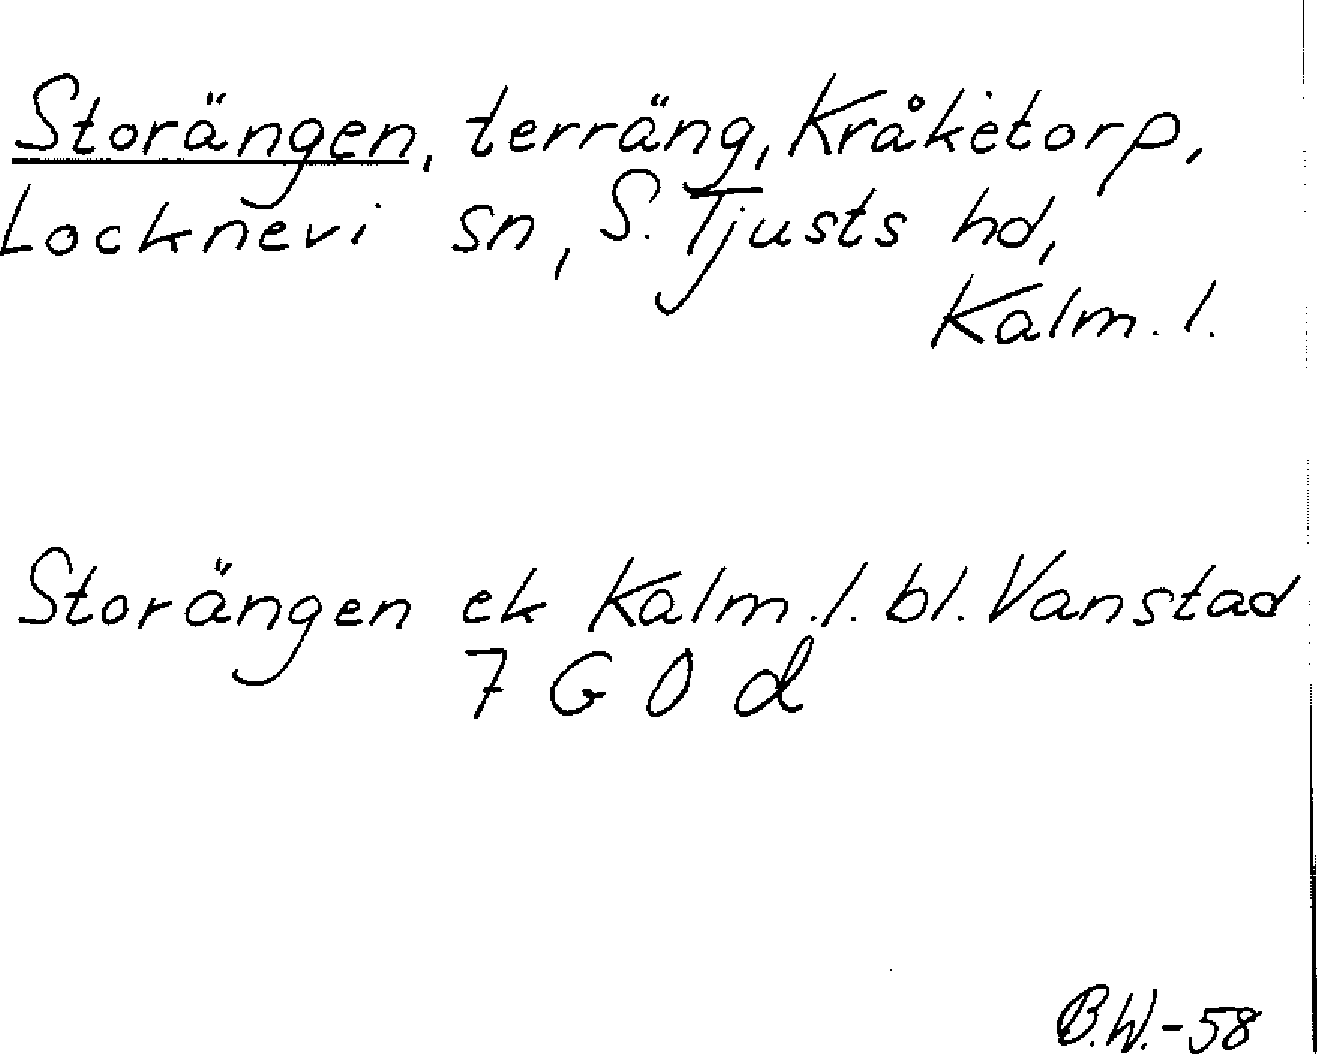 Storängen, terräng, Kråketorp,
Locknevi sn, S. Tjusts hd,
Kalm. l.
Storängen ek Kalm. l. bl. Vanstad
7 G O d
B.W.-58